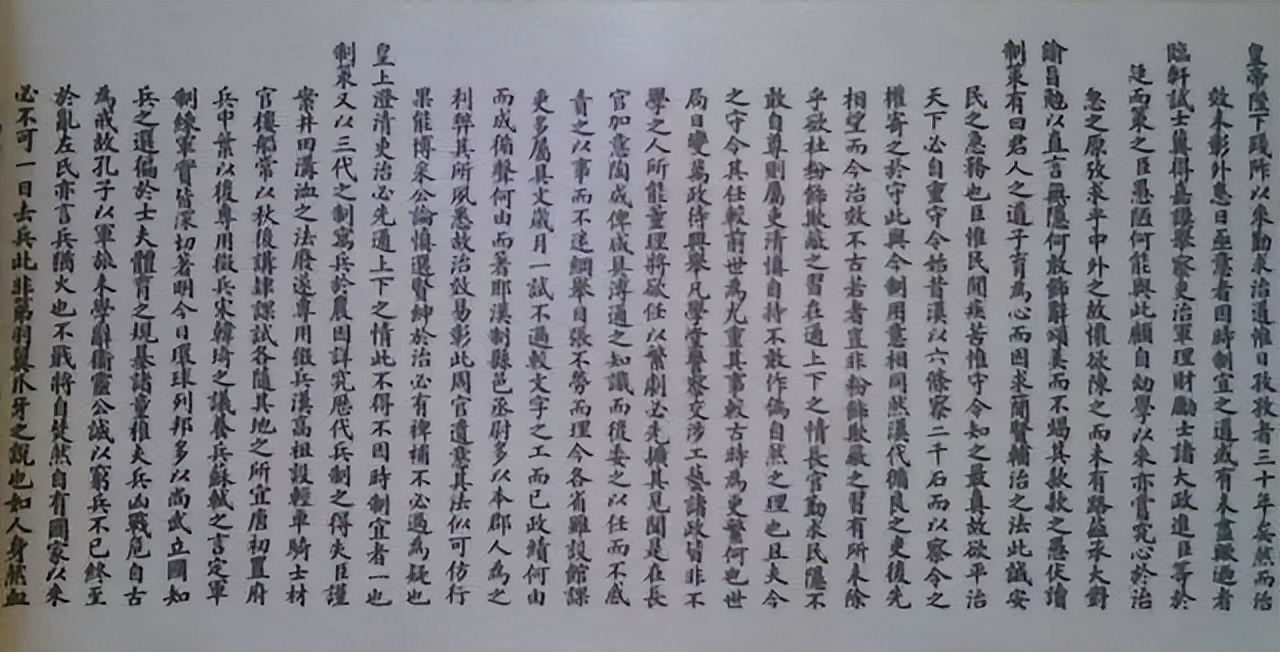 皇帝陛下踐阼以來勤求治道惟日孜孜者三十年矣然而治
效未彰外患日亟意者因時制宜之道或有未盡歟邇者
臨軒試士冀得嘉謨舉察吏治軍理財勵士諸大政進臣等於
廷而策之臣愚陋何能與此顧自幼學以來亦嘗究心於治
忽之原攷求乎中外之故懷欲陳之而未有路茲承大對
諭自勉以直言無隱何敢飾辭頌美而不竭其款款之愚伏讀
制策有曰君人之道子育為心而因求簡賢輔治之法此誠安
民之急務也臣惟民間疾苦惟守令知之最真故欲平治
天下必自重守令始昔漢以六條察二千石而以察令之
權寄之於守此與今制用意相同然漢代循良之吏後先
相望而今治效不古若者豈非粉飾欺蔽之習有所未除
乎欲杜粉飾欺蔽之習在通上下之情長官勤求民隱不
敢自尊則屬吏清慎自持不敢作偽自然之理也且夫今
之守令其任較前世為尤重其事較古時為更繁何也世
局日變萬政待興舉凡學堂警察交涉工藝諸政皆非不
學之人所能董理將欲任以繁劇必先擴其見聞是在長
官加意陶成俾咸具溥通之知識而後委之以任而不惑
責之以事而不迷綱舉目張不勞而理今各省雖設館課
吏多屬具文歲月一試不過較文字之工而已政績何由
而成循聲何由而著耶漢制縣邑丞尉多以本郡人為之
利弊其所夙悉故治效易彰此周官遺意其法似可仿行
果能博采公論慎選賢紳於治必有裨補不必過為疑也
皇上澄清吏治必先通上下之情此不得不因時制宜者一也
制策又以三代之制寓兵於農因詳究歷代兵制之得失臣謹
案井田溝洫之法廢遂專用徵兵漢高祖設輕車騎士材
官樓船常以秋後講肄課試各隨其地之所宜唐初置府
兵中葉以後專用徵兵宋韓琦之議養兵蘇軾之言定軍
制練軍實皆深切著明今日環球列邦多以尚武立國知
兵之選徧於士夫體育之規基諸童稚夫兵凶戰危自古
為戒故孔子以軍旅未學辭衛靈公誠以窮兵不已終至
於亂左氏亦言兵猶火也不戢將自焚然自有國家以來
必不可一日去兵此非第羽翼爪牙之說也如人身然血